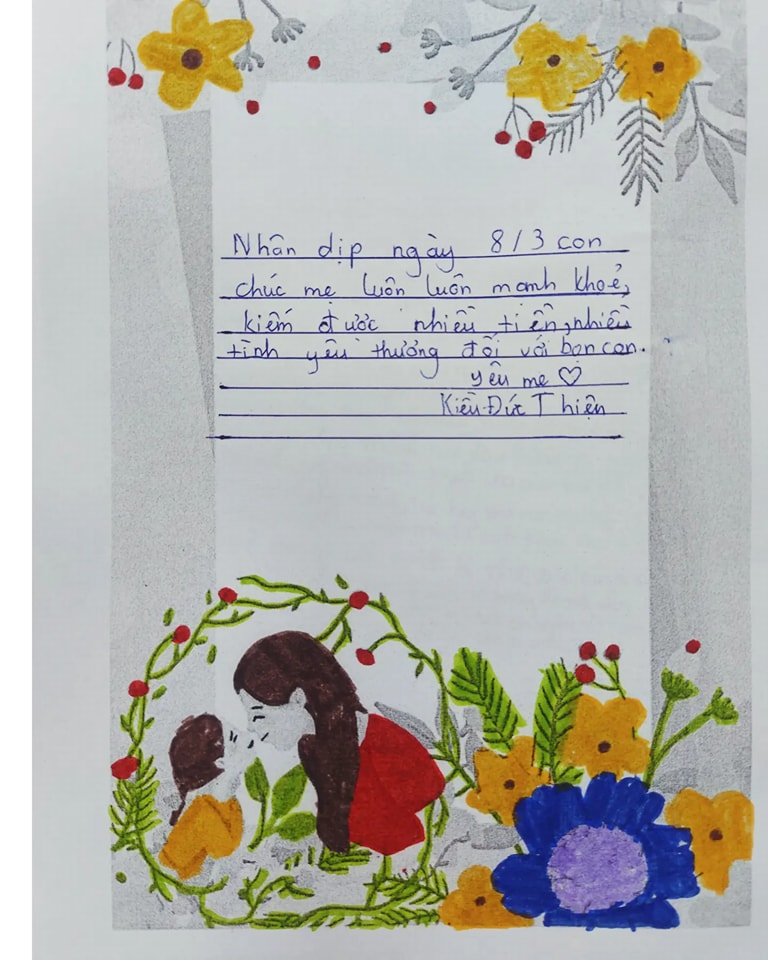 Nhân dịp ngày 8/3 con
chúc mẹ luôn luôn mạnh khoẻ,
kiếm được nhiều tiền, nhiều
tình yêu thương đối với bọn con.
yêu mẹ ♡
Kiều Đức Thiện